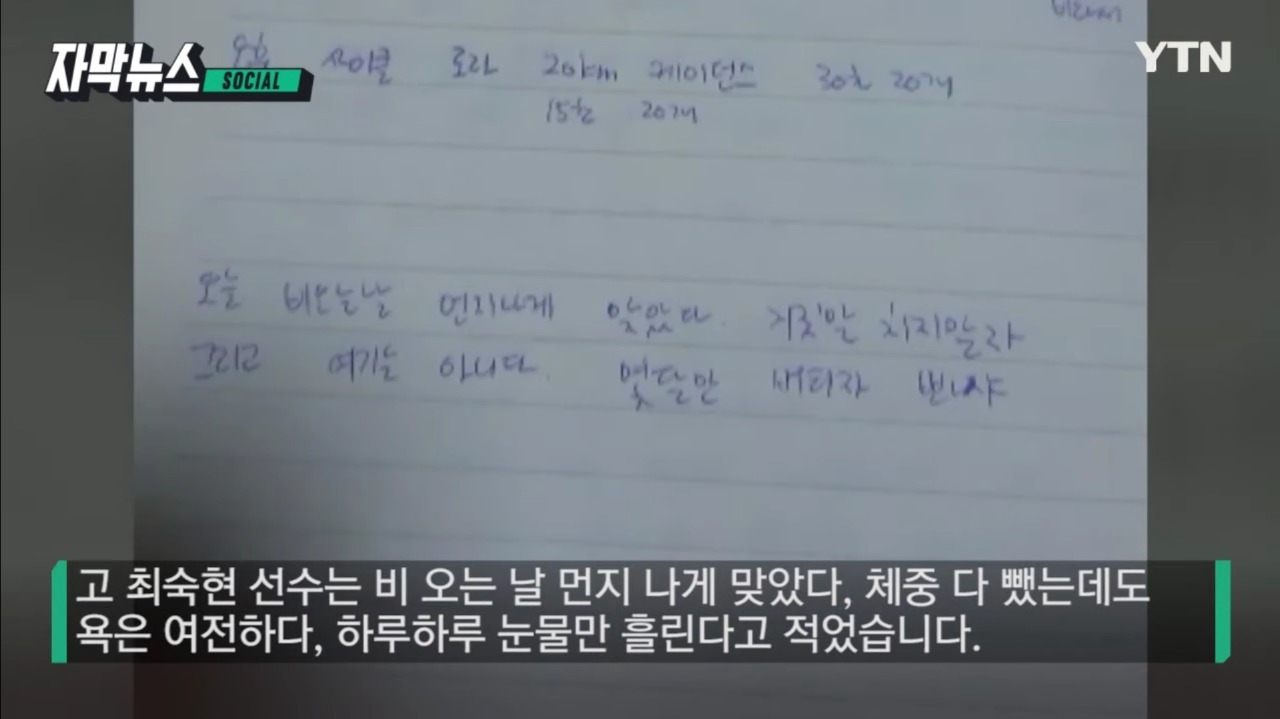 자막뉴스
SOCIAL
YTN
오후 싸이클 로라 케이던스 30초 20개
15초 20개
오늘 비오는날 먼지나게 맞았다. 거짓말 치지말라
그리고 여기는 아니다. 몇달만 버티자
고 최숙현 선수는 비 오는 날 먼지 나게 맞았다, 체중 다 뺐는데도
욕은 여전하다, 하루하루 눈물만 흘린다고 적었습니다.